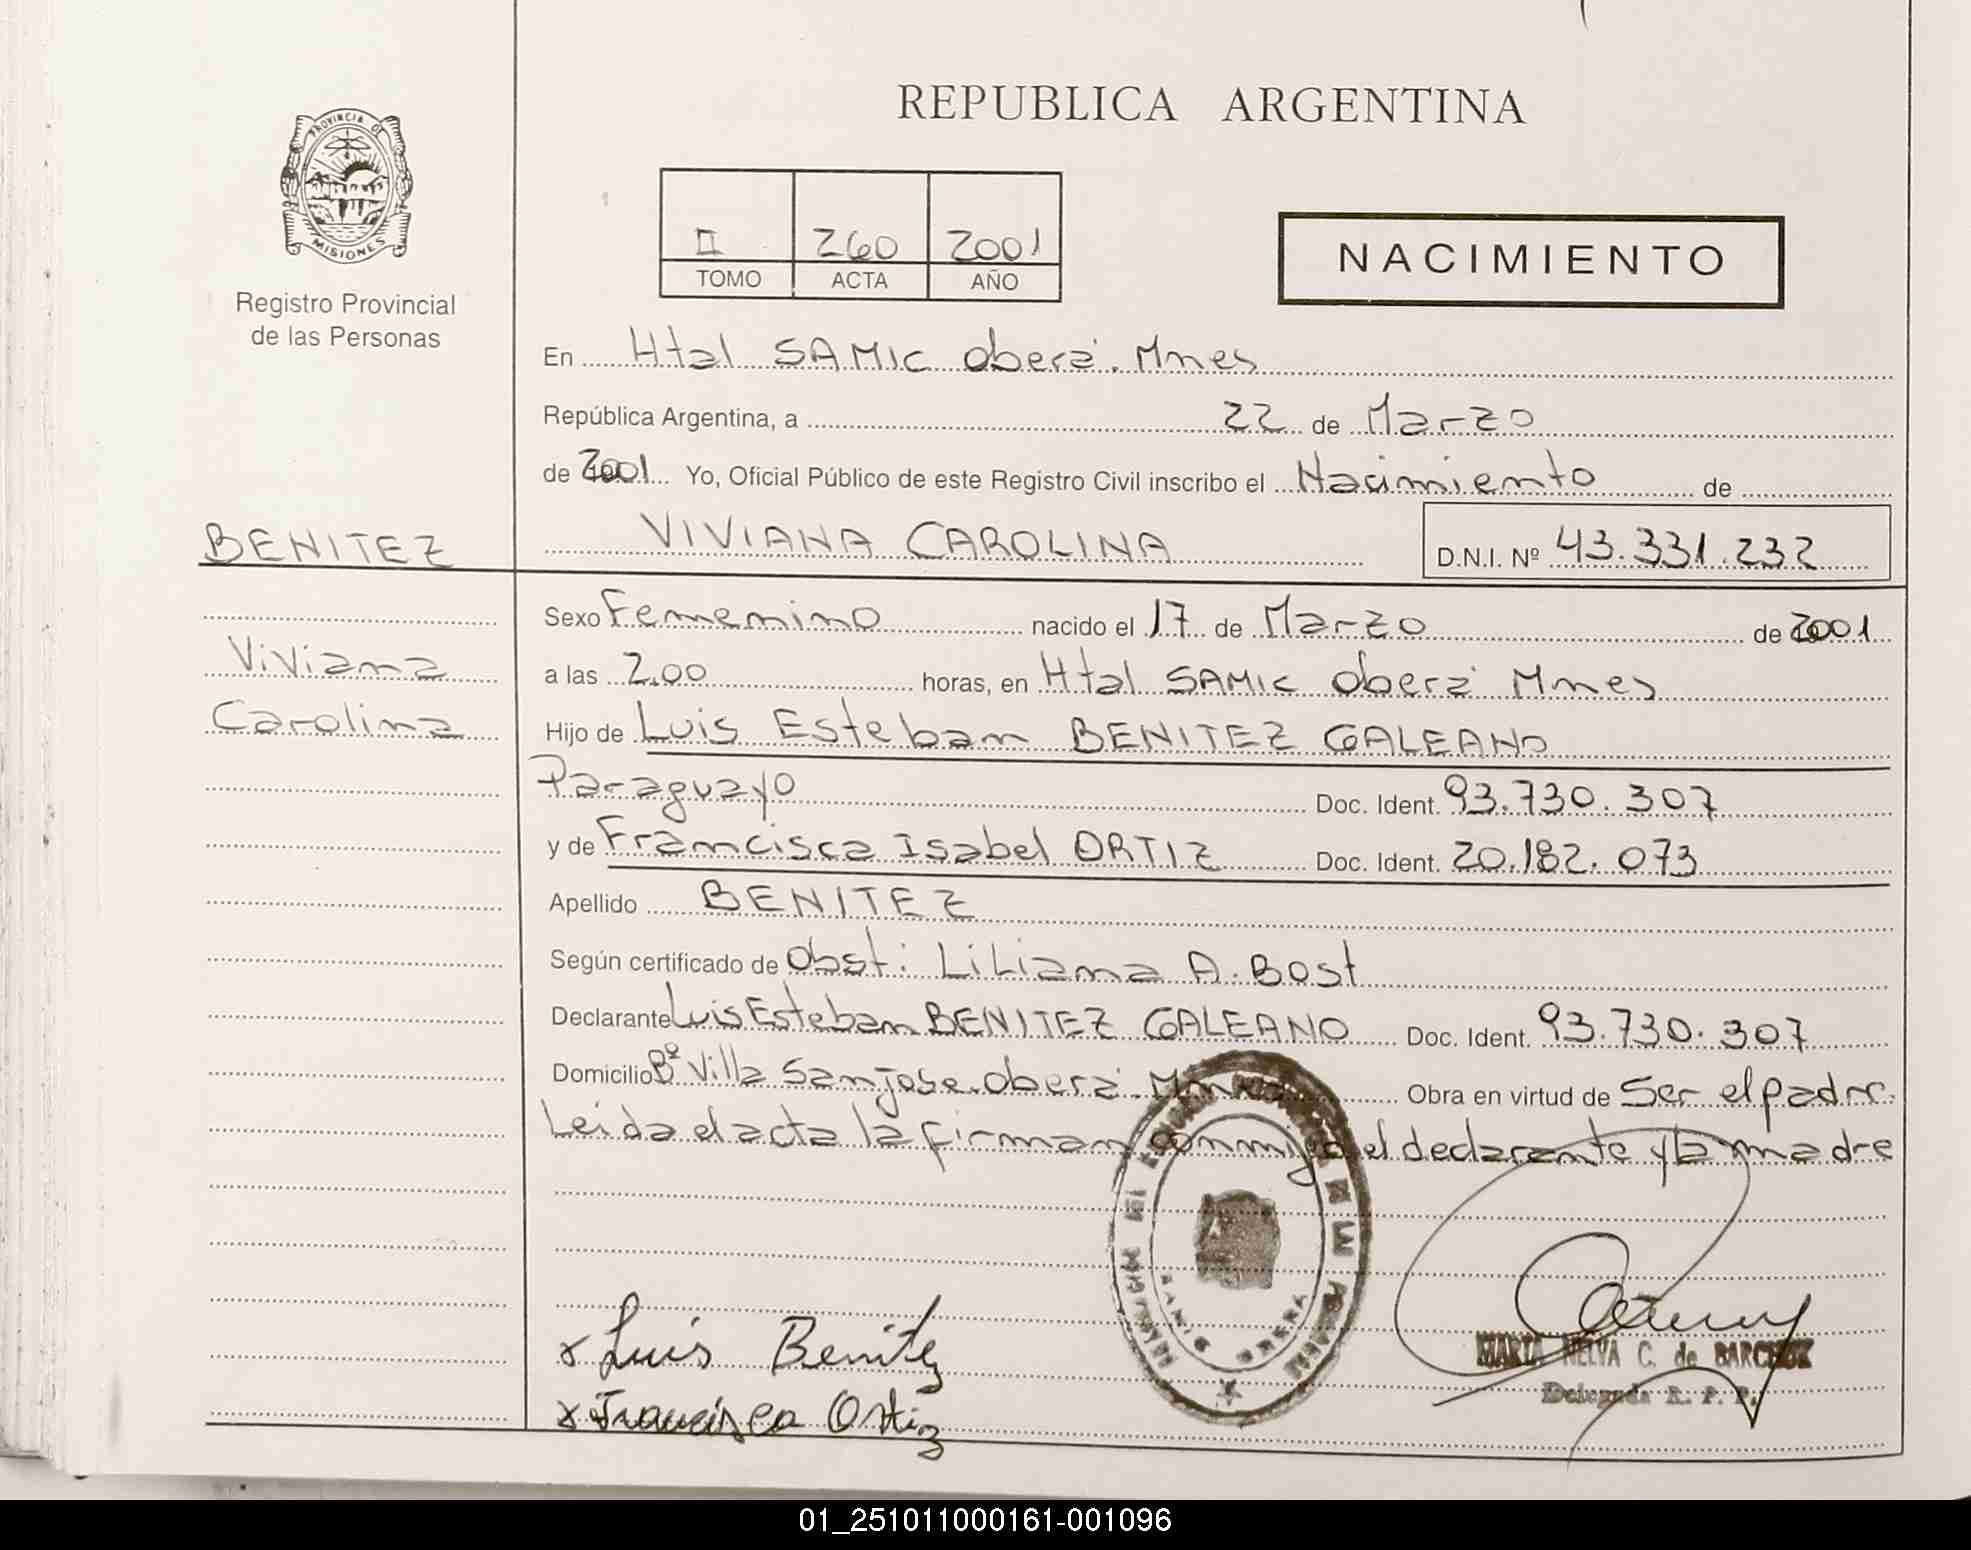 REPUBLICA ARGENTINA
PROVINCIA DE
MISIONES
Registro Provincial
de las Personas
II 260 2001
TOMO ACTA AÑO
NACIMIENTO
En Htal SAMIC Oberá. Mnes
República Argentina, a 22 de Marzo
de 2001 Yo, Oficial Público de este Registro Civil inscribo el Nacimiento de
BENITEZ VIVIANA CAROLINA D.N.I. Nº 43.331.232
Sexo Femenino nacido el 17 de Marzo de 2001
Viviana
a las 2.00 horas, en Htal SAMIC Oberá Mnes
Carolina
Hijo de Luis Esteban BENITEZ GALEANO
Paraguayo Doc. Ident. 93.730.307
y de Francisca Isabel ORTIZ Doc. Ident. 20.182.073
Apellido BENITEZ
Según certificado de Obst: Liliana A. Bost
Declarante Luis Esteban BENITEZ GALEANO Doc. Ident. 93.730.307
Domicilio Bº Villa San Jose. Oberá. Mnes Obra en virtud de Ser el padre.
Leida el acta la firman conmigo el declarante y la madre
x Luis Benitez
MARTA NELVA C. de BARCHUK
Delegada R. P. P.
x Francisca Ortiz
01_251011000161-001096